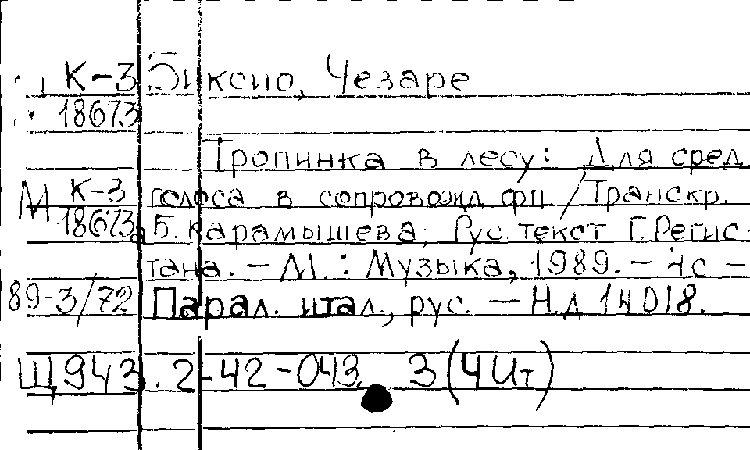 К-3 Биксио, Чезаре
18673
Тропинка в лесу: Для сред.
М К-3 голоса в сопровожд. фп. / Транскр.
18673а Б. Карамышева; Рус. текст Г. Регис-
тана. - М.: Музыка, 1989. - 4с -
89-3/72 Парал. итал., рус. - Н.д. 14018.
Щ943.2-42-043. 3(4Ит)